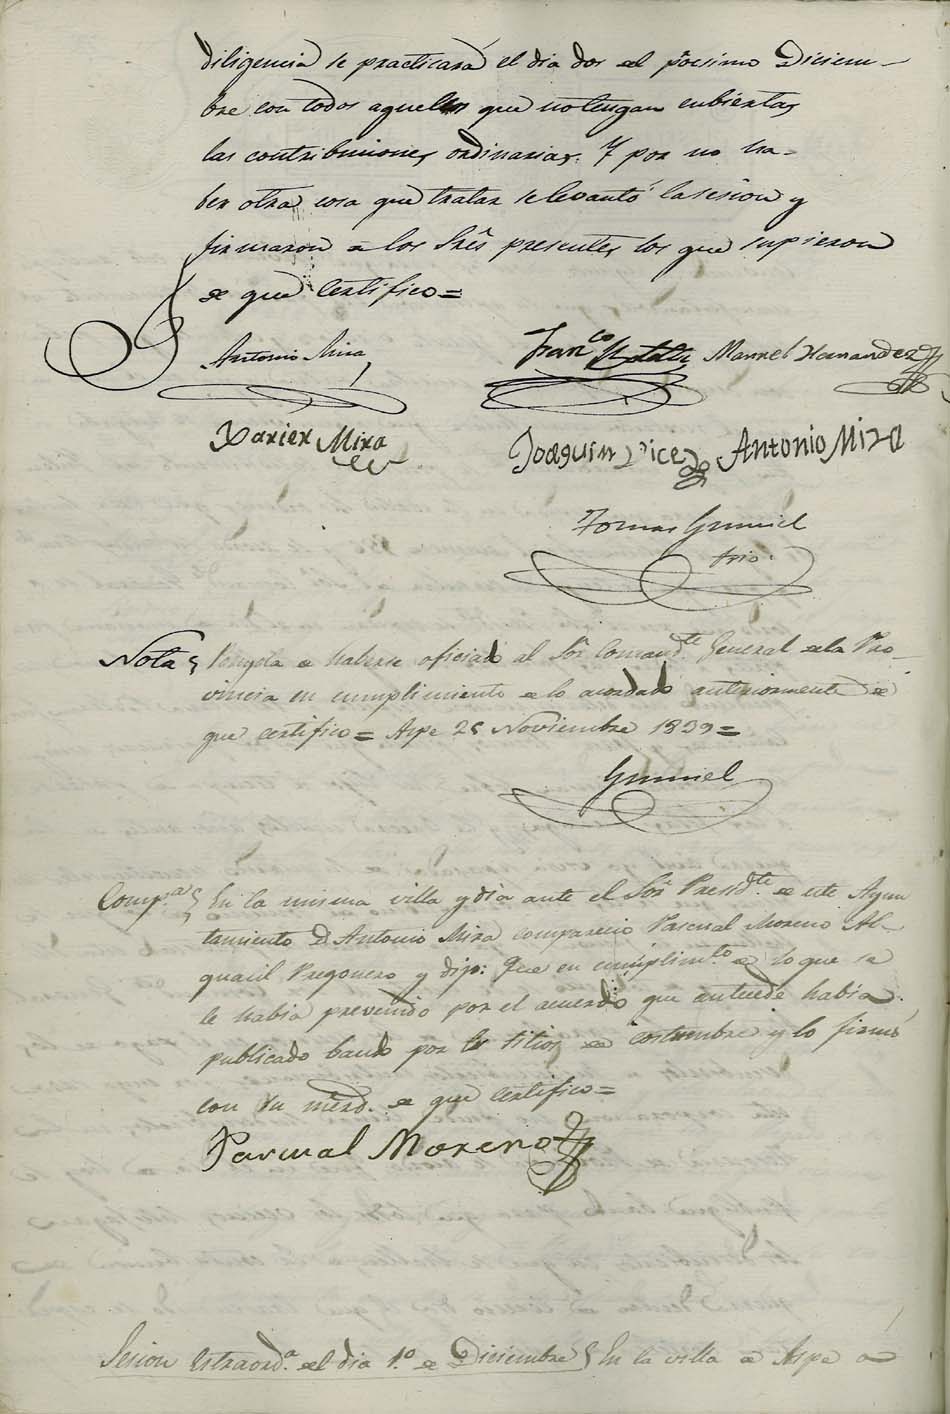 diligencia se practicará el dia dos del pocsimo Diciem-
bre con todos aquellos que no tengan cubiertas
las contribuciones ordinarias. Y por no ha-
ber otra cosa que tratar se levantó la sesion y
firmaron de los Sres presentes los que supieron
de que Certifico=
Antonio Mira
Franco
Manuel Hernandez
Xavier Mira
Joaquin
Antonio Mira
Tomas
Srio.
Nota de haberse oficiado al Sor Comandte General de la Pro-
vincia en cumplimiento de lo acordado anteriormente de
que certifico = Aspe 25 Noviembre 1839=
Compa En la misma villa y dia ante el Sor Presidte de este Ayun
tamiento D. Antonio Mira comparecio Pascual Moreno Al-
guacil Pregonero y dijo: Que en cumplimto de lo que se
le habia prevenido por el acuerdo que antecede habia
publicado bando por los sitios de costumbre y lo firmó
con su merd. de que certifico=
Pascual Moreno
Sesion Estraorda del dia 1o de Diciembre En la villa de Aspe a